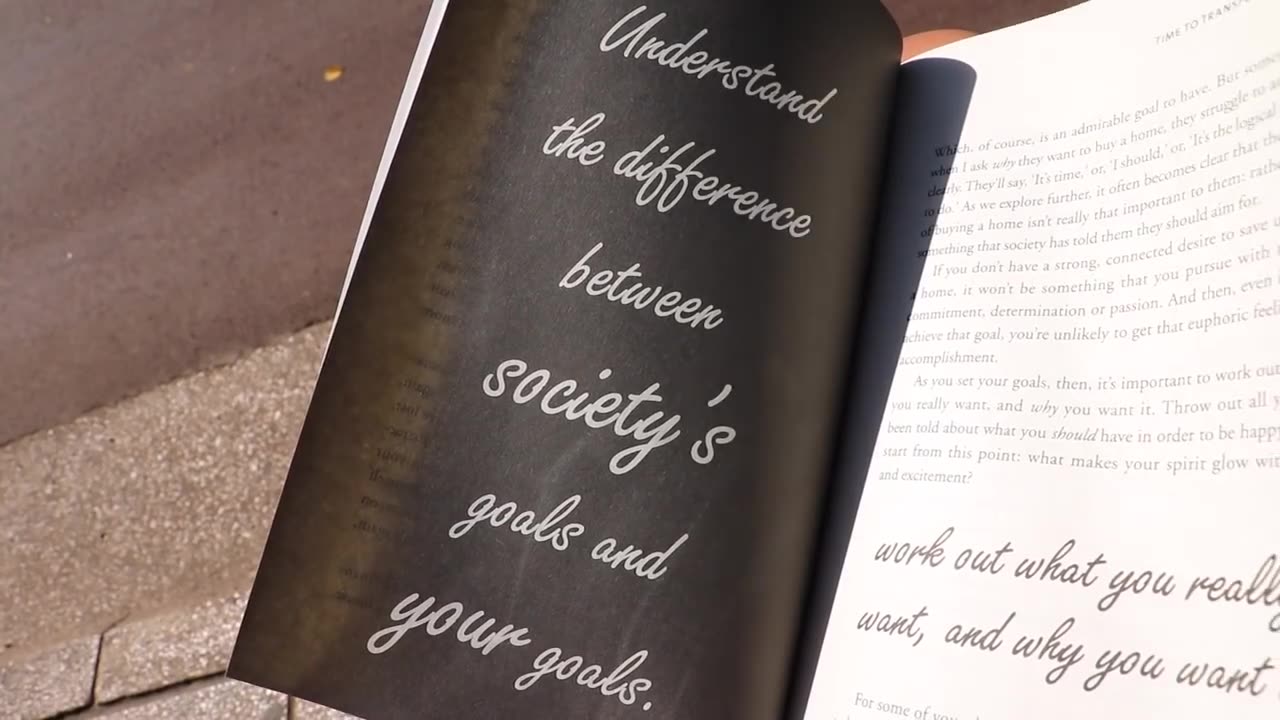 Understand
the difference
between
society's
goals and
your goals.
TIME TO
Which, of course, is an admirable goal to have. But
when I ask why they want to buy a home, they struggle to
clearly. They'll say, 'It's time,' or, 'I should,' or, 'It's the logical
to do.' As we explore further, it often becomes clear that
of buying a home isn't really that important to them:
something that society has told them they should aim for.
If you don't have a strong, connected desire to save
a home, it won't be something that you pursue with
commitment, determination or passion. And then, even
achieve that goal, you're unlikely to get that euphoric
accomplishment.
As you set your goals, then, it's important to work out
you really want, and why you want it. Throw out all
been told about what you should have in order to be
start from this point: what makes your spirit glow
and excitement?
work out what you really
want, and why you want
For some of